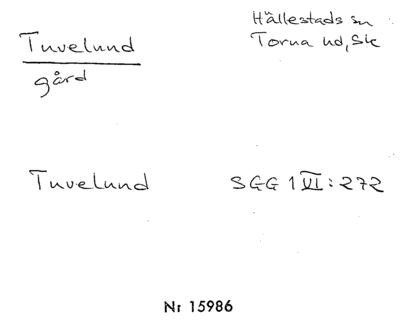 Tuvelund
gård
Hällestads sn
Torna hd, Sk
Tuvelund SGG 1 VI: 272
Nr 15986